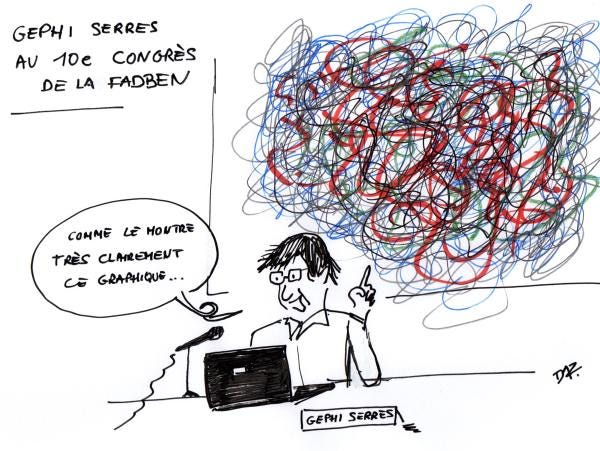 GEPHI SERRES
AU 10e CONGRÈS
DE LA FADBEN
COMME LE MONTRE
TRÈS CLAIREMENT
CE GRAPHIQUE...
GEPHI SERRES